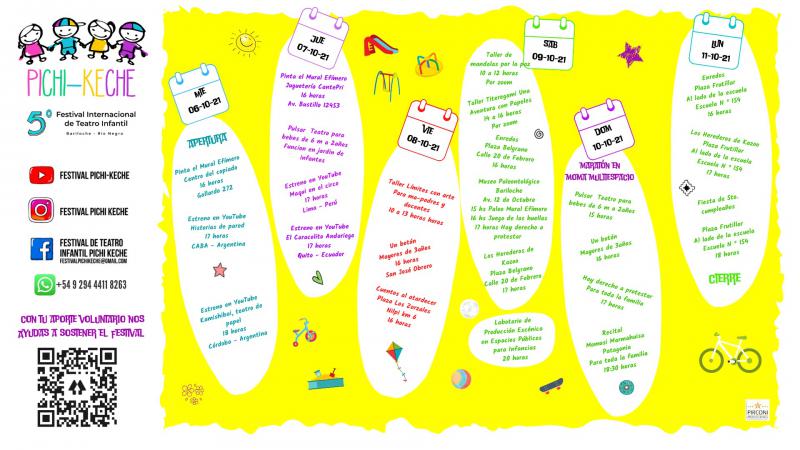 PICHI-KECHE
5º Festival Internacional
de Teatro Infantil
Bariloche - Río Negro
FESTIVAL PICHI-KECHE
FESTIVAL PICHI KECHE
FESTIVAL DE TEATRO
INFANTIL PICHI KECHE
FESTIVALPICHIKECHE@GMAIL.COM
+54 9 294 4411 8263
CON TU APORTE VOLUNTARIO NOS
AYUDAS A SOSTENER EL FESTIVAL
MIE
06-10-21
APERTURA
Pinta el Mural Efímero
Centro del copiado
16 horas
Gallardo 272
Estreno en YouTube
Historias de pared
17 horas
CABA - Argentina
Estreno en YouTube
Kamishibai, teatro de
papel
18 horas
Córdoba - Argentina
JUE
07-10-21
Pinta el Mural Efímero
Juguetería CantaPri
16 horas
Av. Bustillo 12453
Pulsar Teatro para
bebes de 6 m a 2años
Funcion en jardín de
infantes
Estreno en YouTube
Maqui en el circo
17 horas
Lima - Perú
Estreno en YouTube
El Caracolito Andariego
17 horas
Quito - Ecuador
VIE
08-10-21
Taller Límites con arte
Para ma-padres y
docentes
10 a 13 horas horas
Un botón
Mayores de 3años
16 horas
San José Obrero
Cuentos al atardecer
Plaza Los Zorzales
Ñilpi km 6
16 horas
SAB
09-10-21
Taller de
mandalas por la paz
10 a 12 horas
Por zoom
Taller Titeregami Una
Aventura con Papeles
14 a 16 horas
Por zoom
Enredos
Plaza Belgrano
Calle 20 de Febrero
16 horas
Museo Paleontológico
Bariloche
Av. 12 de Octubre
15 hs Pulso Mural Efímero
16 hs Juego de las huellas
17 horas Hoy derecho a
protestar
Los Herederos de
Kazon
Plaza Belgrano
Calle 20 de Febrero
17 horas
Labotorio de
Producción Escénica
en Espacios Públicos
para Infancias
20 horas
DOM
10-10-21
MARATÓN EN
MOMA MULTIESPACIO
Pulsar Teatro para
bebes de 6 m a 2años
15 horas
Un botón
Mayores de 3años
16 horas
Hoy derecho a protestar
Para toda la familia
17 horas
Recital
Mamusi Marmahuisa
Patagonia
Para toda la familia
18:30 horas
LUN
11-10-21
Enredos
Plaza Frutillar
Al lado de la escuela
Escuela N° 154
16 horas
Los Herederos de Kazon
Plaza Frutillar
Al lado de la escuela
Escuela N° 154
17 horas
Fiesta de 5to.
cumpleaños
Plaza Frutillar
Al lado de la escuela
Escuela N° 154
18 horas
CIERRE
PIRCONI